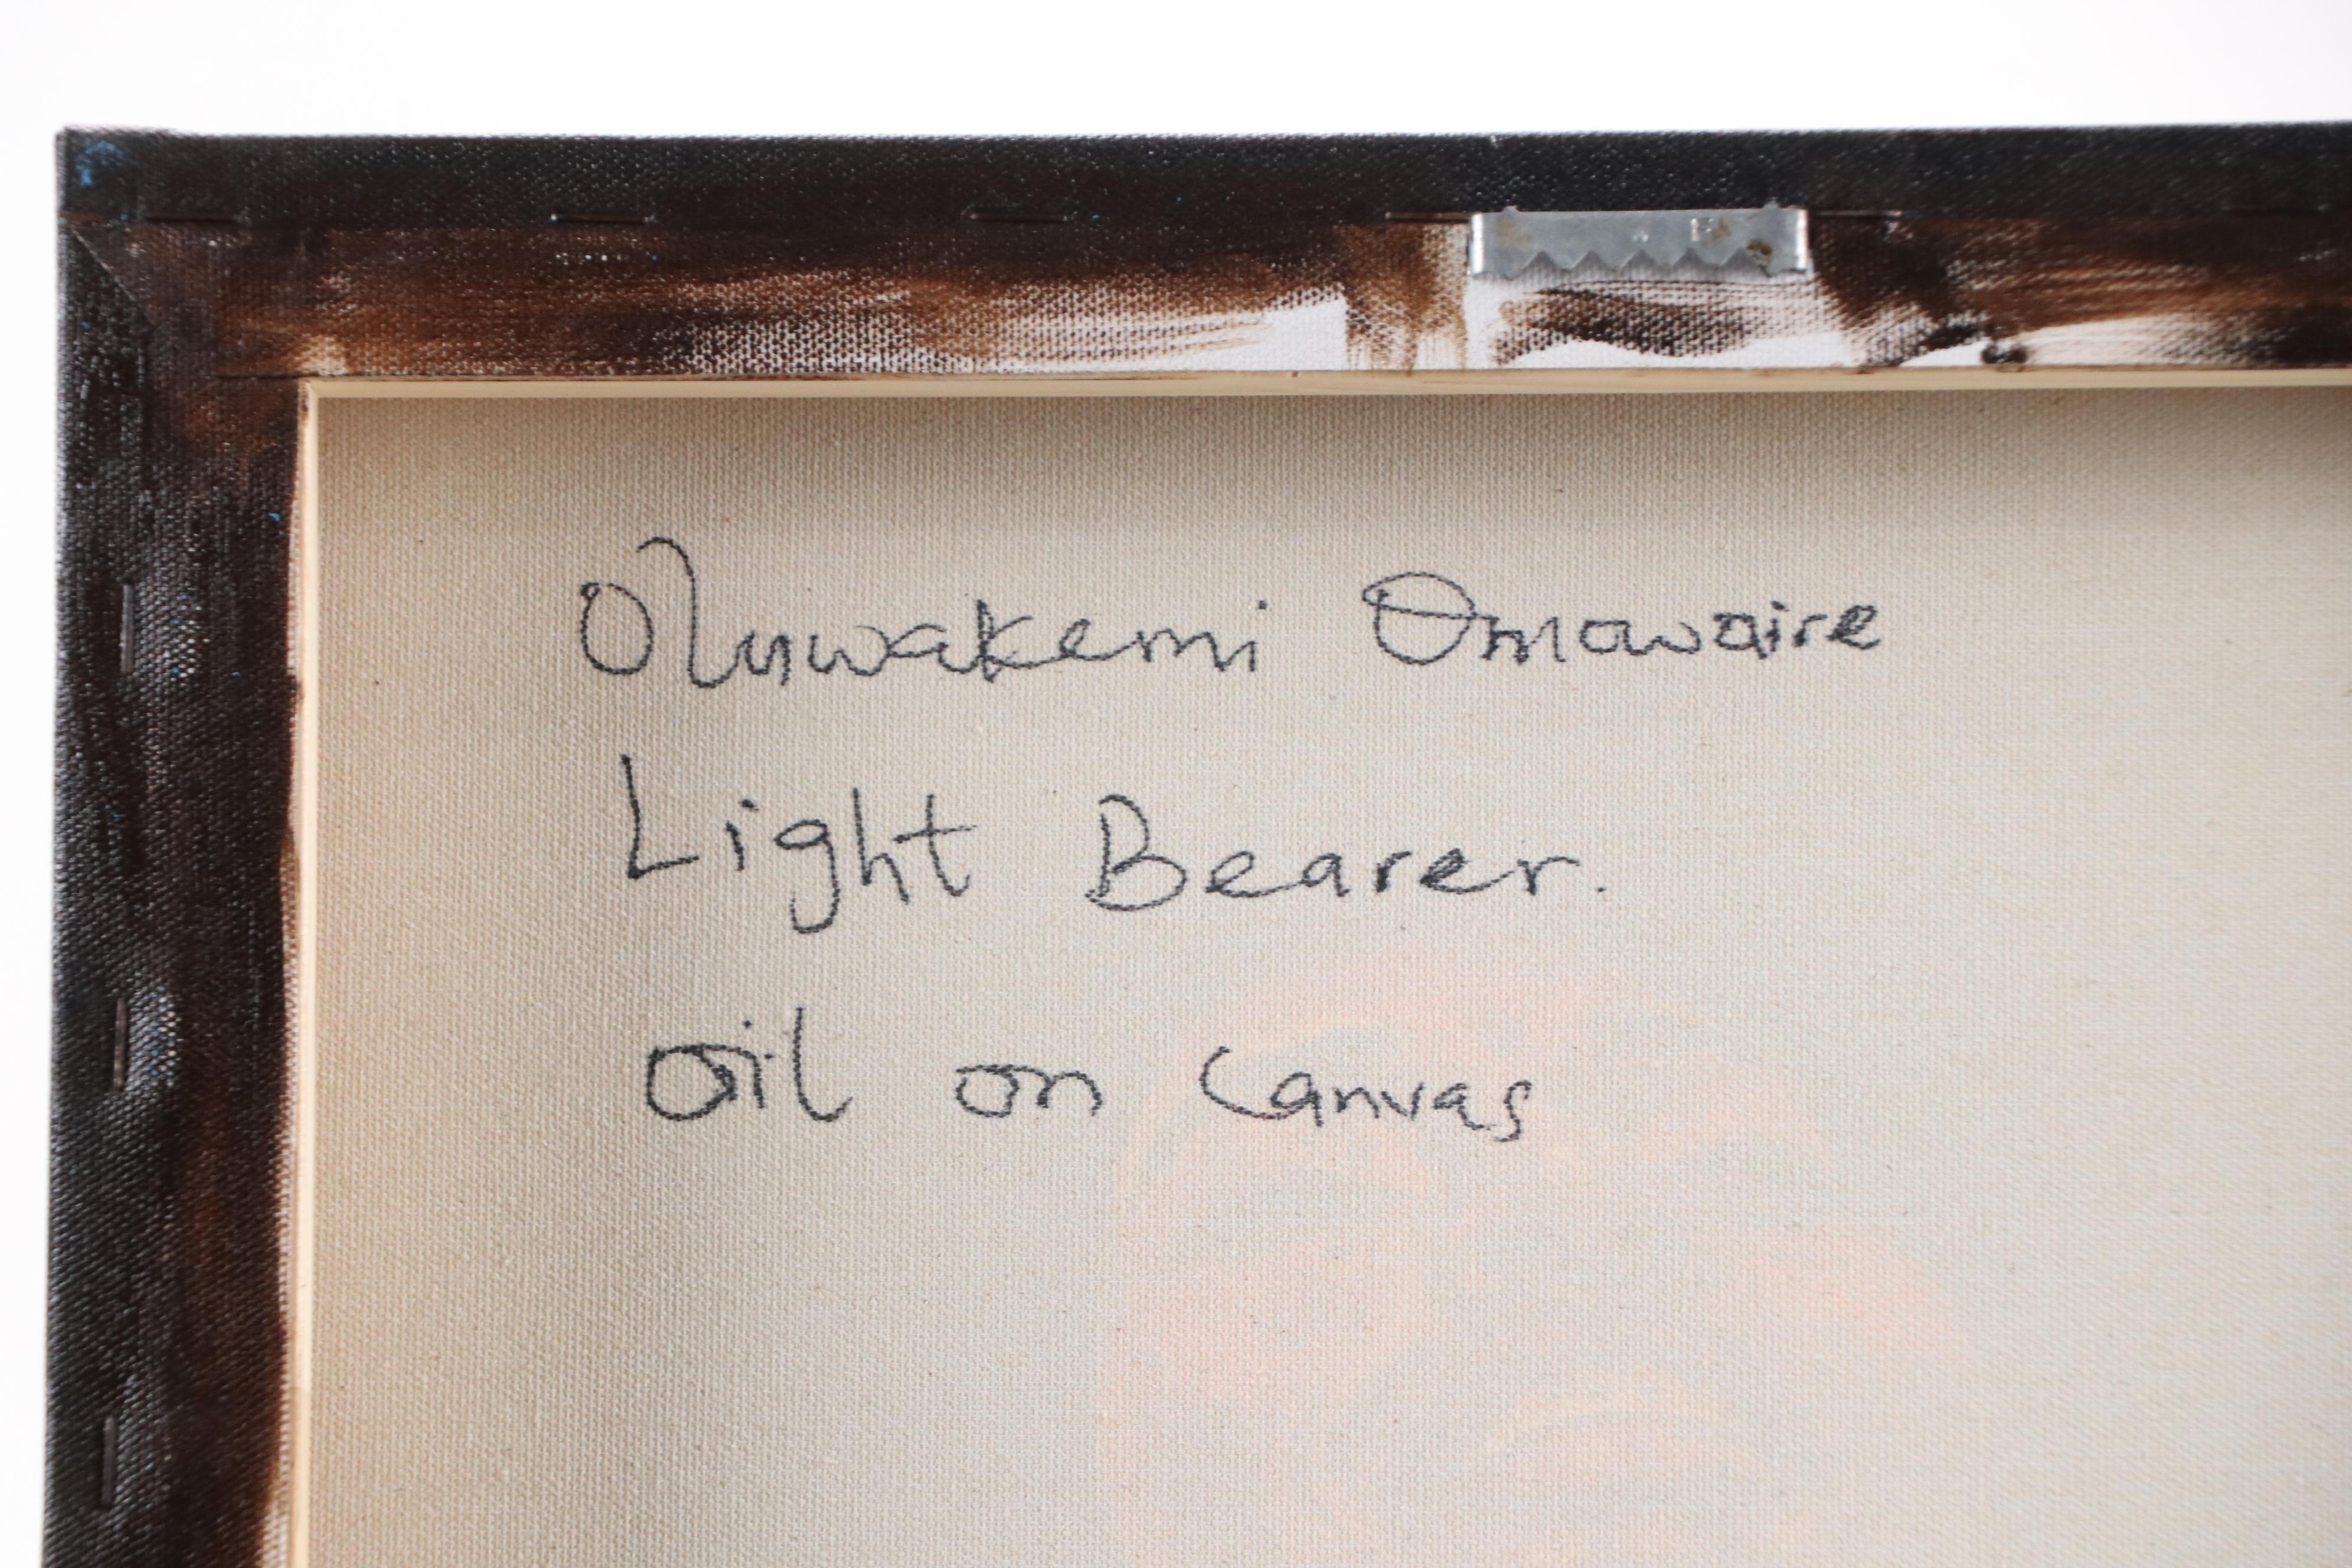 Oluwakemi Omowaire
Light Bearer.
Oil on Canvas